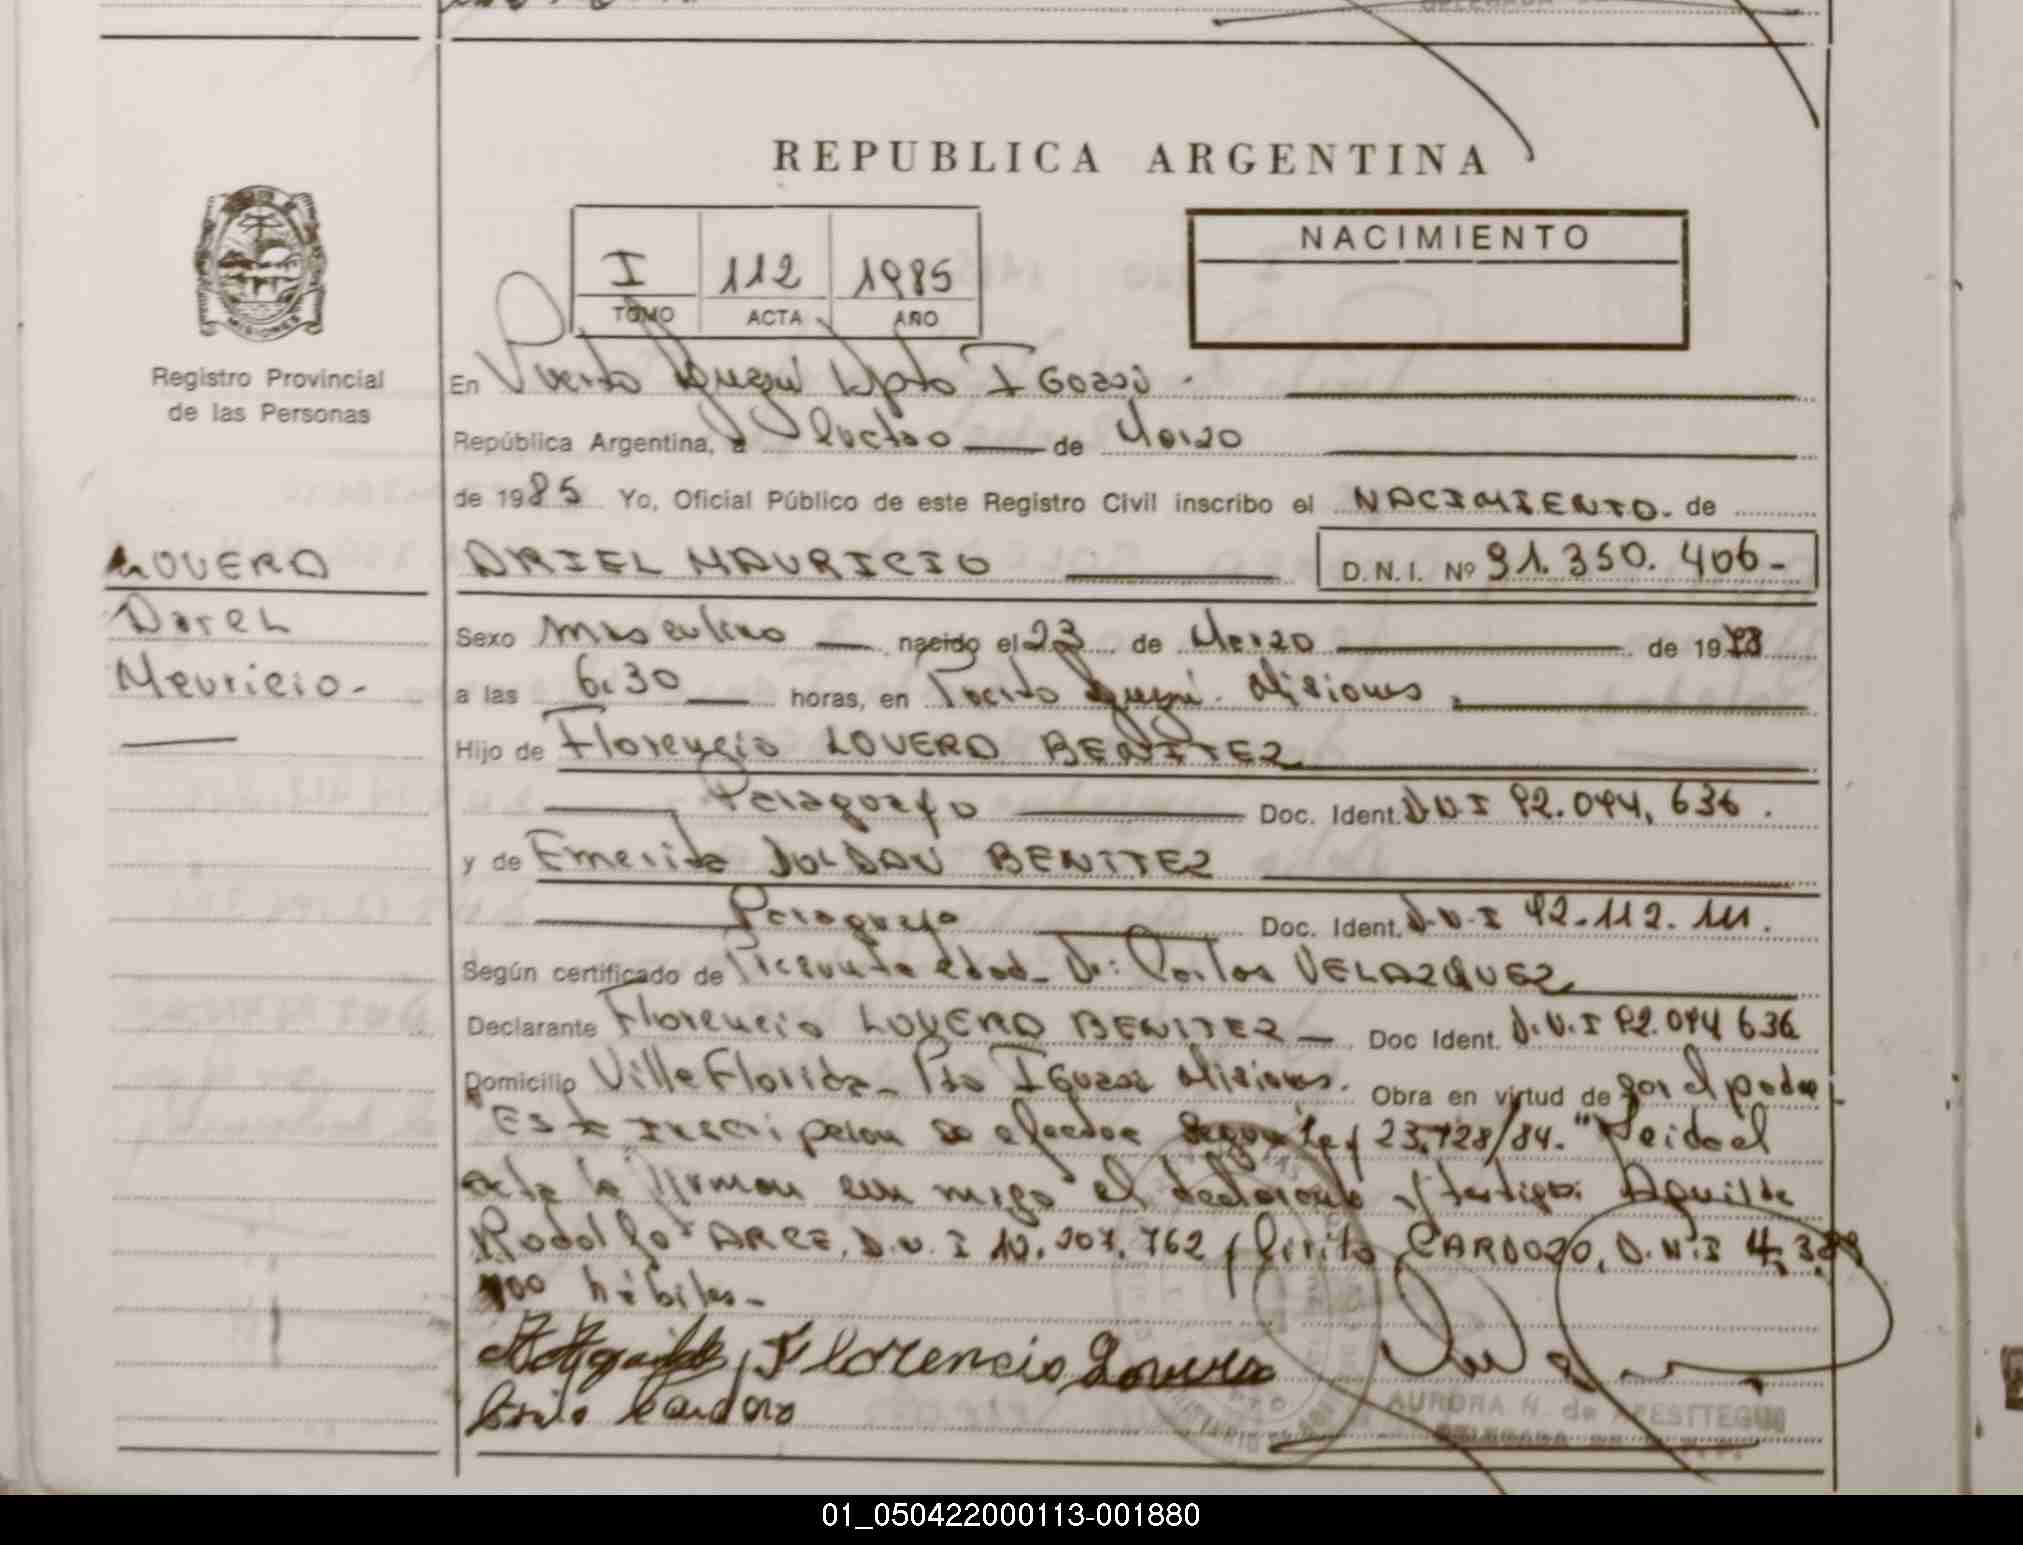 REPUBLICA ARGENTINA
NACIMIENTO
I 112 1985
TOMO ACTA AÑO
MISIONES
Registro Provincial
de las Personas
En Puerto Iguazú Dpto Iguazú -
República Argentina, a de Marzo
de 1985 Yo, Oficial Público de este Registro Civil inscribo el NACIMIENTO. de
LOVERA
ARIEL MAURICIO D.N.I. Nº 91.350.406-
Ariel
Mauricio-
Sexo Masculino nacido el 23 de Marzo de 19
a las 6.30 horas, en Puerto Iguazú. Misiones.
Hijo de Florencio LOVERA BENITEZ
Paraguayo Doc. Ident. D.N.I 92.044.636.
y de Emerita ROLDAN BENITEZ
Paraguaya Doc. Ident. D.N.I 92.112.111.
Según certificado de Presunta edad- Dr: Carlos VELAZQUEZ
Declarante Florencio LOVERA BENITEZ Doc Ident. D.N.I 92.044 636
Domicilio Villa Florida- Pto Iguazú Misiones. Obra en virtud de ser el padre
"Esta inscripcion se efectua según Ley 23.128/84." Leida el
acta la firman con migo el declarante y testigos
Rodolfo ARCE, D.N.I 12.207.762 y Cirilo CARDOZO, D.N.I
hábiles-
Florencio Lovera
Cirilo Cardozo
AURORA N. de APESTTEGUI
01_050422000113-001880